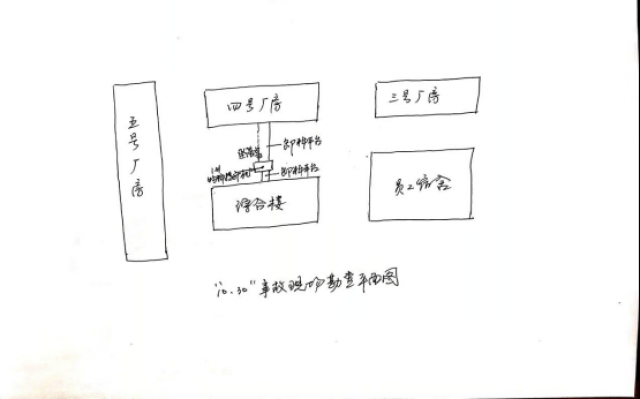 五号厂房
四号厂房
三号厂房
卸料平台
卸料平台
综合楼
员工宿舍
"10.30"事故现场勘查平面图